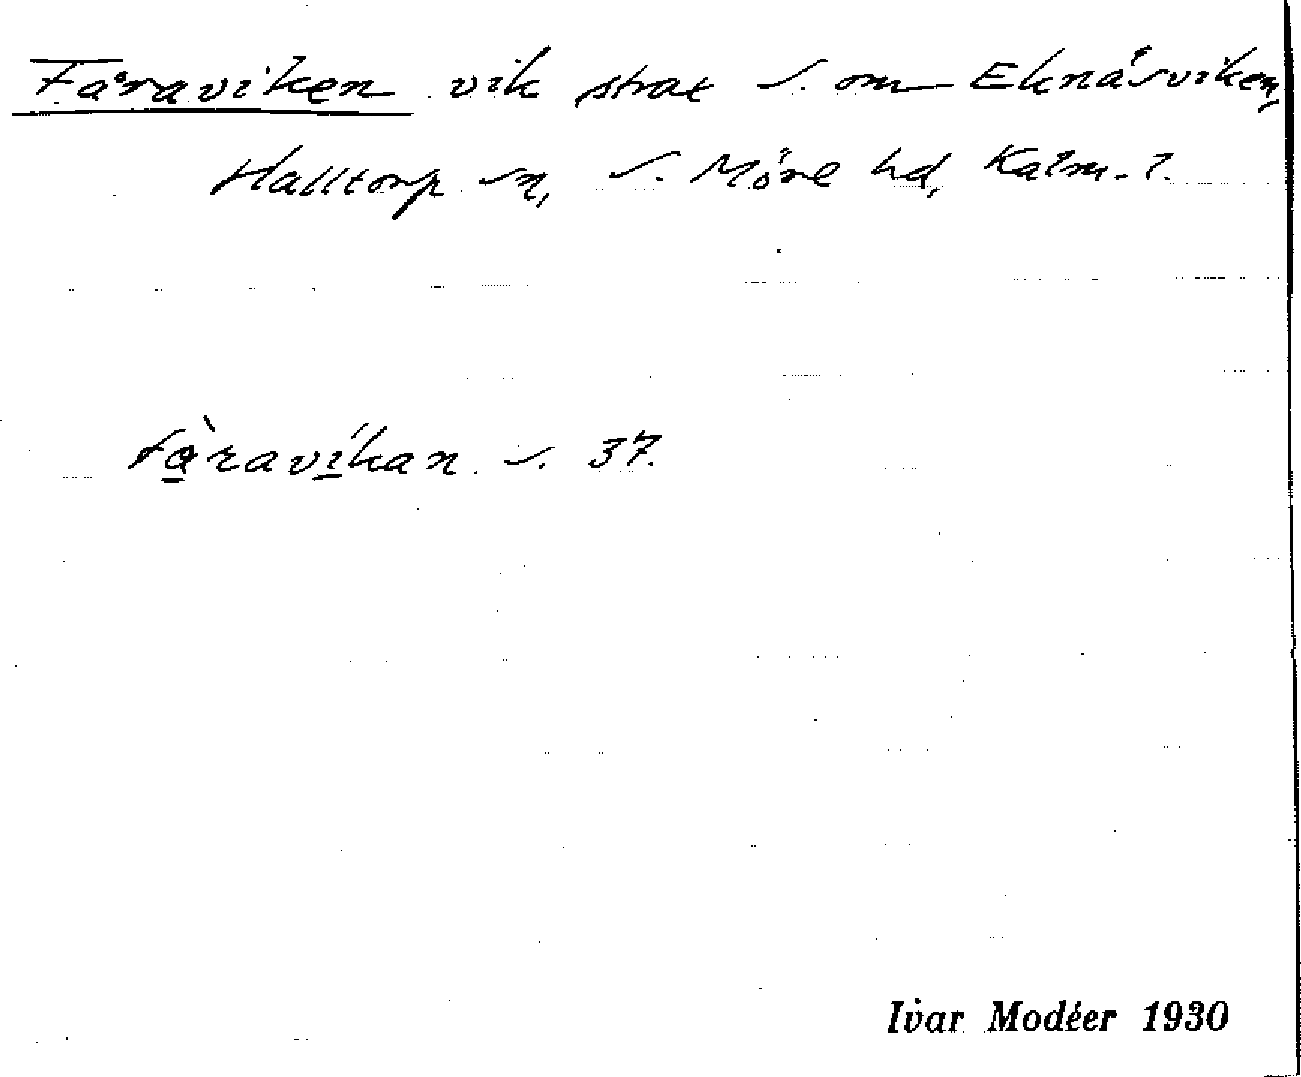 Fåraviken vik strax s. om Eknäsviken,
Halltorp sn, S. Möre hd, Kalm. l.
fàravíkan s. 37.
Ivar Modéer 1930